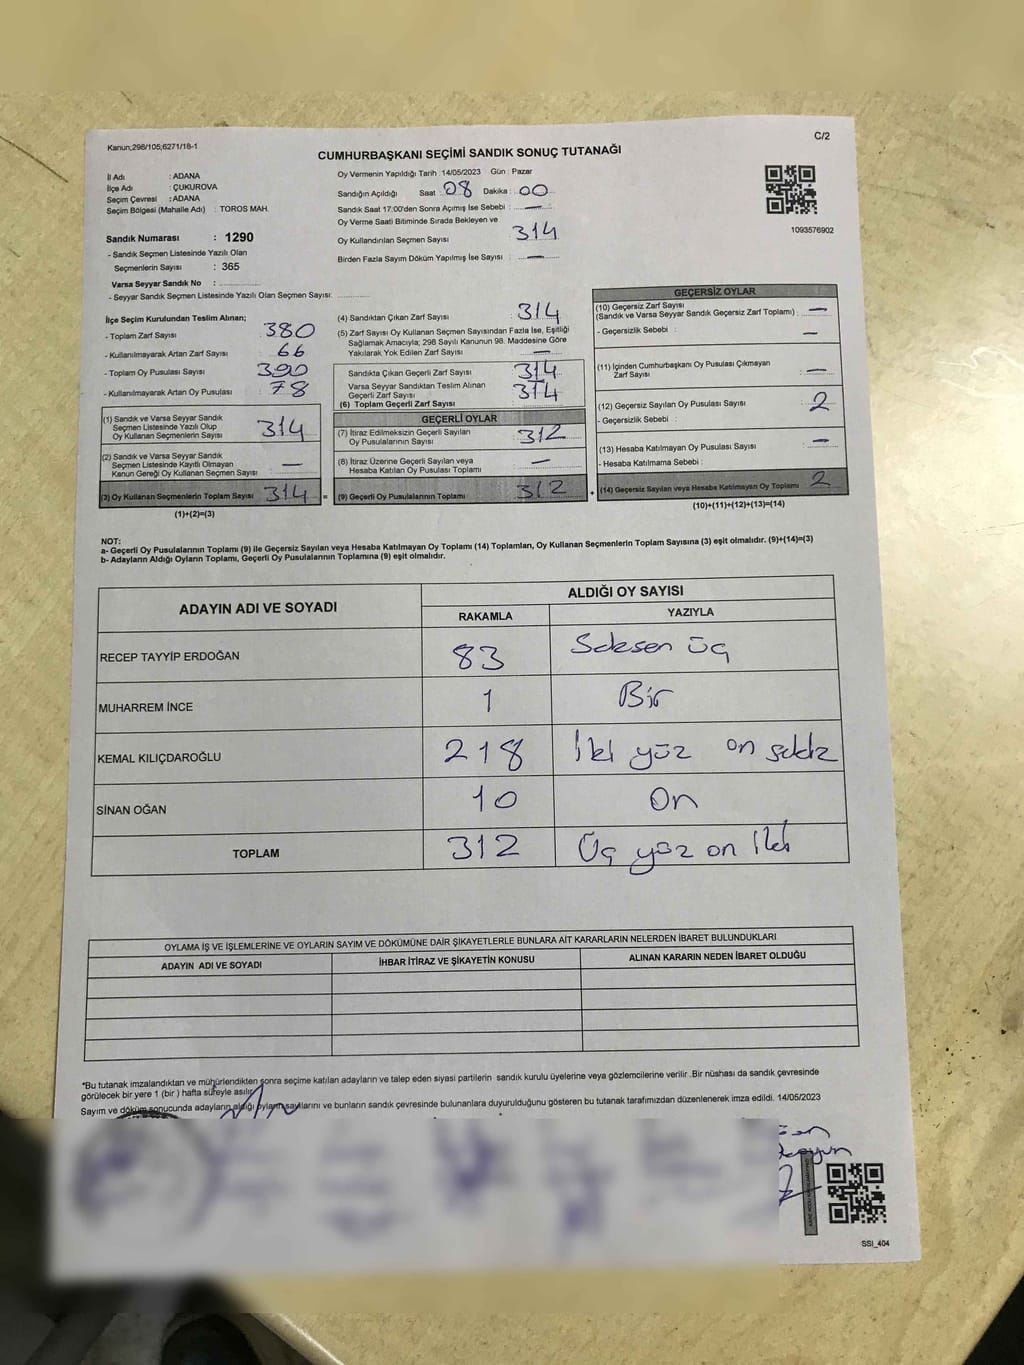 Kanun;298/105;6271/18-1
C/2
CUMHURBAŞKANI SEÇİMİ SANDIK SONUÇ TUTANAĞI
İl Adı : ADANA
İlçe Adı : ÇUKUROVA
Seçim Çevresi : ADANA
Seçim Bölgesi (Mahalle Adı) : TOROS MAH.
Sandık Numarası : 1290
- Sandık Seçmen Listesinde Yazılı Olan
Seçmenlerin Sayısı : 365
Varsa Seyyar Sandık No :
- Seyyar Sandık Seçmen Listesinde Yazılı Olan Seçmen Sayısı:
Oy Vermenin Yapıldığı Tarih :14/05/2023 Gün : Pazar
Sandığın Açıldığı Saat : 08 Dakika : 00
Sandık Saat 17:00'den Sonra Açımış İse Sebebi : —
Oy Verme Saati Bitiminde Sırada Bekleyen ve
Oy Kullandırılan Seçmen Sayısı 314
Birden Fazla Sayım Döküm Yapılmış İse Sayısı : —
1093576902
İlçe Seçim Kurulundan Teslim Alınan;
- Toplam Zarf Sayısı 380
- Kullanılmayarak Artan Zarf Sayısı 66
- Toplam Oy Pusulası Sayısı 390
- Kullanılmayarak Artan Oy Pusulası 78
(1) Sandık ve Varsa Seyyar Sandık
Seçmen Listesinde Yazılı Olup
Oy Kullanan Seçmenlerin Sayısı 314
(2) Sandık ve Varsa Seyyar Sandık
Seçmen Listesinde Kayıtlı Olmayan
Kanun Gereği Oy Kullanan Seçmen Sayısı —
(3) Oy Kullanan Seçmenlerin Toplam Sayısı 314 =
(1)+(2)=(3)
(4) Sandıktan Çıkan Zarf Sayısı 314
(5) Zarf Sayısı Oy Kullanan Seçmen Sayısından Fazla İse, Eşitliği
Sağlamak Amacıyla; 298 Sayılı Kanunun 98. Maddesine Göre
Yakılarak Yok Edilen Zarf Sayısı —
Sandıkta Çıkan Geçerli Zarf Sayısı 314
Varsa Seyyar Sandıktan Teslim Alınan
Geçerli Zarf Sayısı 314
(6) Toplam Geçerli Zarf Sayısı
GEÇERLİ OYLAR
(7) İtiraz Edilmeksizin Geçerli Sayılan
Oy Pusulalarının Sayısı 312
(8) İtiraz Üzerine Geçerli Sayılan veya
Hesaba Katılan Oy Pusulası Toplamı —
(9) Geçerli Oy Pusulalarının Toplamı 312 +
GEÇERSİZ OYLAR
(10) Geçersiz Zarf Sayısı
(Sandık ve Varsa Seyyar Sandık Geçersiz Zarf Toplamı) : —
- Geçersizlik Sebebi : —
(11) İçinden Cumhurbaşkanı Oy Pusulası Çıkmayan
Zarf Sayısı —
(12) Geçersiz Sayılan Oy Pusulası Sayısı 2
- Geçersizlik Sebebi :
(13) Hesaba Katılmayan Oy Pusulası Sayısı —
- Hesaba Katılmama Sebebi :
(14) Geçersiz Sayılan veya Hesaba Katılmayan Oy Toplamı 2
(10)+(11)+(12)+(13)=(14)
NOT:
a- Geçerli Oy Pusulalarının Toplamı (9) ile Geçersiz Sayılan veya Hesaba Katılmayan Oy Toplamı (14) Toplamları, Oy Kullanan Seçmenlerin Toplam Sayısına (3) eşit olmalıdır. (9)+(14)=(3)
b- Adayların Aldığı Oyların Toplamı, Geçerli Oy Pusulalarının Toplamına (9) eşit olmalıdır.
ADAYIN ADI VE SOYADI ALDIĞI OY SAYISI
RAKAMLA YAZIYLA
RECEP TAYYİP ERDOĞAN 83 Seksen üç
MUHARREM İNCE 1 Bir
KEMAL KILIÇDAROĞLU 218 İki yüz on sekiz
SİNAN OĞAN 10 On
TOPLAM 312 Üç yüz on iki
OYLAMA İŞ VE İŞLEMLERİNE VE OYLARIN SAYIM VE DÖKÜMÜNE DAİR ŞİKAYETLERLE BUNLARA AİT KARARLARIN NELERDEN İBARET BULUNDUKLARI
ADAYIN ADI VE SOYADI İHBAR İTİRAZ VE ŞİKAYETİN KONUSU ALINAN KARARIN NEDEN İBARET OLDUĞU
*Bu tutanak imzalandıktan ve mühürlendikten sonra seçime katılan adayların ve talep eden siyasi partilerin sandık kurulu üyelerine veya gözlemcilerine verilir .Bir nüshası da sandık çevresinde
görülecek bir yere 1 (bir ) hafta süreyle asılır.
Sayım ve döküm sonucunda adayların aldığı oyların sayılarını ve bunların sandık çevresinde bulunanlara duyurulduğunu gösteren bu tutanak tarafımızdan düzenlenerek imza edildi. 14/05/2023
SSI_404